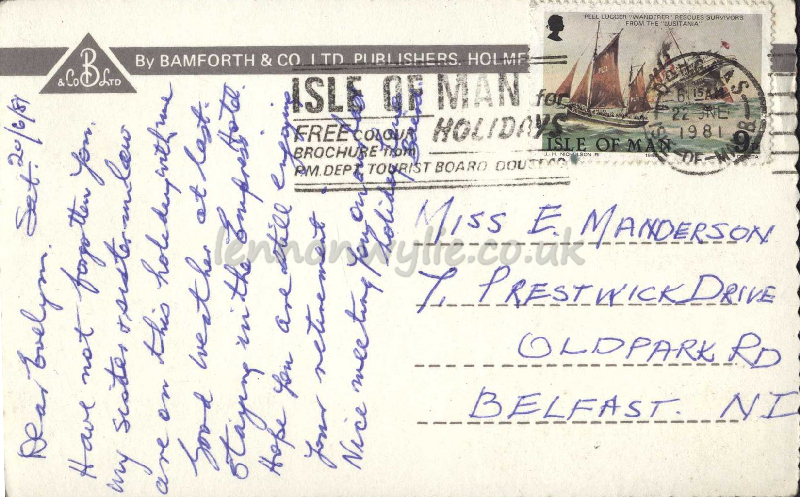 By BAMFORTH & CO. LTD. PUBLISHERS. HOLMF
B
& Co LTD
PEEL LUGGER "WANDERER" RESCUES SURVIVORS
FROM THE "LUSITANIA"
ISLE OF MAN
9
ISLE OF MAN for
HOLIDAYS
FREE COLOUR
BROCHURE from
P.M. DEPT. TOURIST BOARD DOUGLAS
22 JNE
1981
Sat. 20/6/81
Dear Evelyn.
Have not forgotten you.
My sister & sister-in-law
are on this holiday with me
Good weather at last.
Staying in the Empress Hotel.
Hope you are still enjoying
your retirement.
Nice meeting you on the
holiday
MISS E. MANDERSON
7, PRESTWICK DRIVE
OLDPARK RD
BELFAST. NI
lennonwylie.co.uk